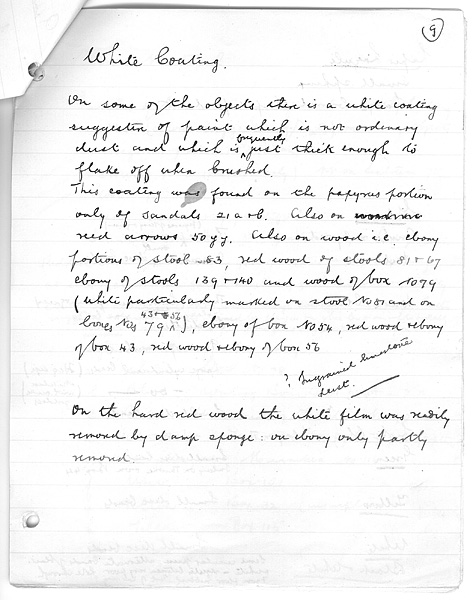 9
White Coating.
On some of the objects there is a white coating
suggestive of paint which is not ordinary
dust and which is frequently just thick enough to
flake off when brushed.
This coating was found on the papyrus portion
only of sandals 21 a + b. Also on
reed arrows 50 yy. Also on wood i.e. ebony
portions of stool 83, red wood of stools 81 + 67
ebony of stools 139 + 140 and wood of box No 79
(white particularly marked on stool No 81 and on
43 + 56
boxes Nos 79 ^), ebony of box No 54, red wood + ebony
of box 43, red wood + ebony of box 56
? Ingrained limestone
dust.
On the hard red wood the white film was readily
removed by damp sponge: on ebony only partly
removed.